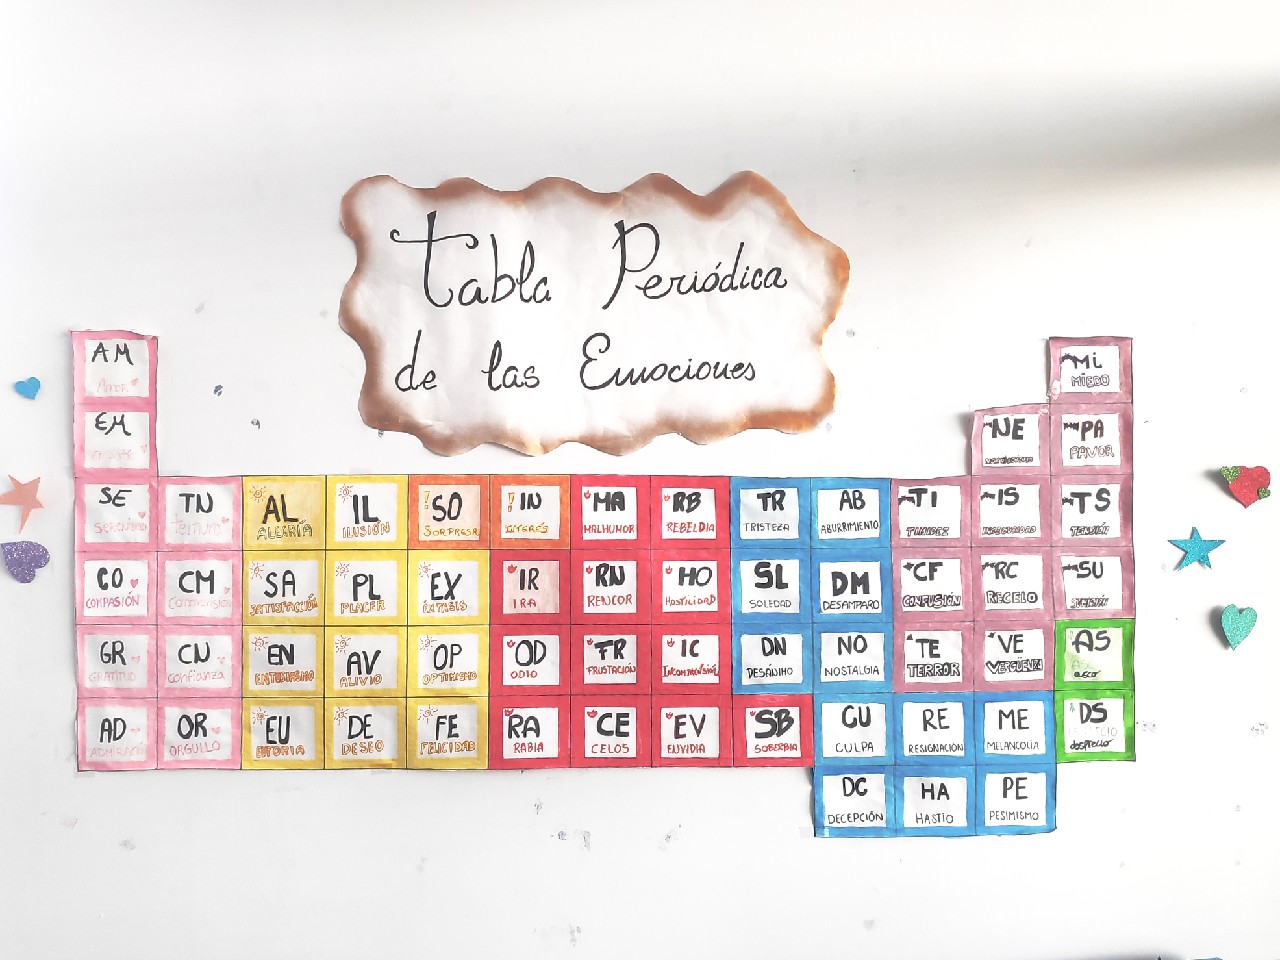 Tabla Periódica
de las Emociones
AM
Amor
MI
MIEDO
EM
NE
PA
PAVOR
SE
TN
ternura
AL
ALEGRÍA
IL
ILUSIÓN
SO
SORPRESA
IN
INTERÉS
MA
MALHUMOR
RB
REBELDIA
TR
TRISTEZA
AB
ABURRIMIENTO
TI
TIMIDEZ
IS
INSEGURIDAD
TS
TENSIÓN
CO
COMPASIÓN
CM
Comprensión
SA
SATISFACCIÓN
PL
PLACER
EX
ÉXTASIS
IR
IRA
RN
RENCOR
HO
HOSTILIDAD
SL
SOLEDAD
DM
DESAMPARO
CF
CONFUSIÓN
RC
RECELO
SU
GR
GRATITUD
CN
confianza
EN
ENTUSIASMO
AV
ALIVIO
OP
OPTIMISMO
OD
ODIO
FR
FRUSTRACIÓN
IC
DN
DESÁNIMO
NO
NOSTALGIA
TE
TERROR
VE
VERGÜENZA
AS
asco
AD
ADMIRACIÓN
OR
ORGULLO
EU
EUFORIA
DE
DESEO
FE
FELICIDAD
RA
RABIA
CE
CELOS
EV
ENVIDIA
SB
SOBERBIA
CU
CULPA
RE
RESIGNACIÓN
ME
MELANCOLÍA
DS
desprecio
DC
DECEPCIÓN
HA
HASTÍO
PE
PESIMISMO